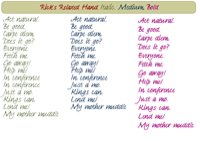 Relaxed Hand Italic, Medium, Bold
Act natural.
Be good.
Carpe diem.
Does it go?
Everyone.
Fetch me.
Go away!
Help me!
In conference
Just a mo.
Kings can.
Lend me!
My mother
Act natural.
Be good.
Carpe diem.
Does it go?
Everyone.
Fetch me.
Go away!
Help me!
In conference
Just a mo.
Kings can.
Lend me!
My mother
Act natural.
Be good.
Carpe diem.
Does it go?
Everyone.
Fetch me.
Go away!
Help me!
In conference
Just a mo.
Kings can.
Lend me!
My mother